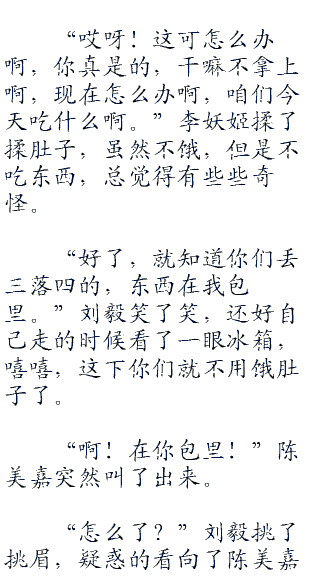 “哎呀！这可怎么办
啊，你真是的，干嘛不拿上
啊，现在怎么办啊，咱们今
天吃什么啊。”李妖姬揉了
揉肚子，虽然不饿，但是不
吃东西，总觉得有些些奇
怪。
“好了，就知道你们丢
三落四的，东西在我包
里。”刘毅笑了笑，还好自
己走的时候看了一眼冰箱，
嘻嘻，这下你们就不用饿肚
子了。
“啊！在你包里！”陈
美嘉突然叫了出来。
“怎么了？”刘毅挑了
挑眉，疑惑的看向了陈美嘉